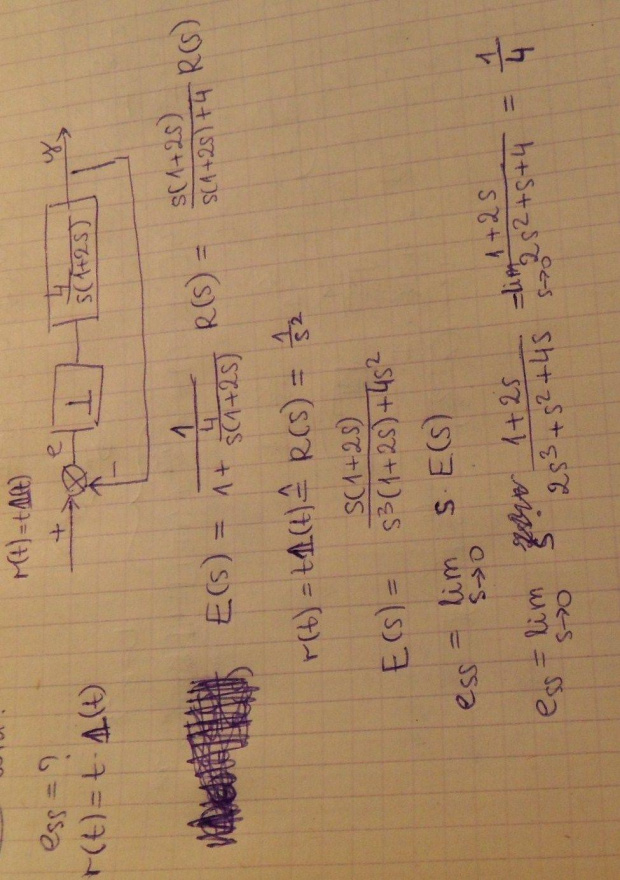 e_ss = ?
r(t) = t · 1(t)
r(t) = t1(t)
+
e
-
1
4/(s(1+2s))
y
E(s) = 1/(1 + 4/(s(1+2s))) R(s) = s(1+2s)/(s(1+2s)+4) R(s)
r(t) = t1(t) ≙ R(s) = 1/s²
E(s) = s(1+2s)/(s³(1+2s)+4s²)
e_ss = lim s→0 s · E(s)
e_ss = lim s→0 s (1+2s)/(2s³+s²+4s) = lim s→0 (1+2s)/(2s²+s+4) = 1/4